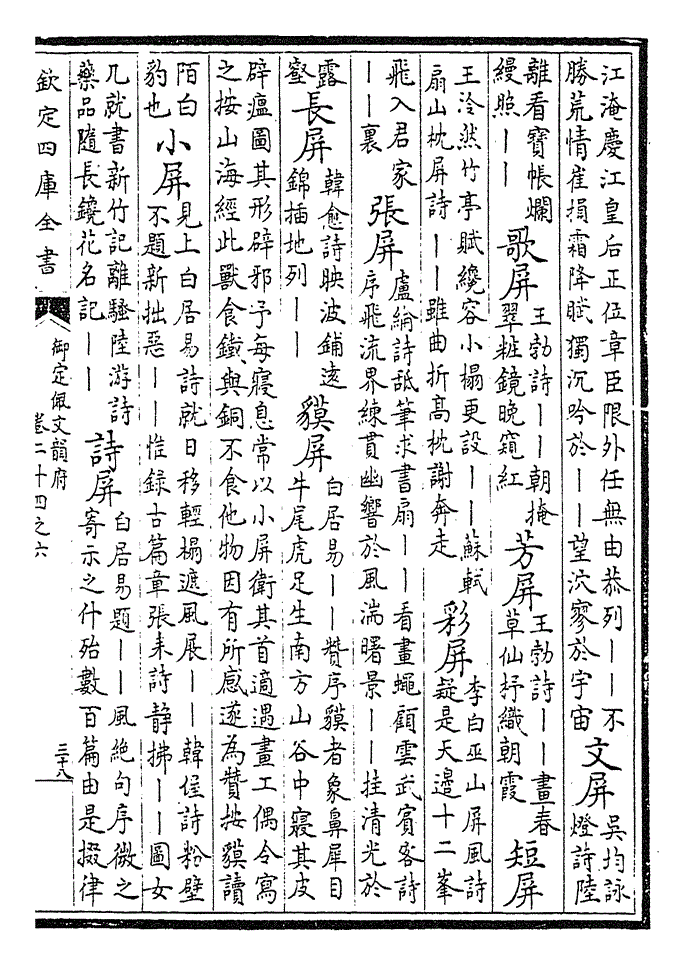 江淹慶江皇后正位章臣限外任無由恭列丨丨不
勝荒情崔損霜降賦獨沉吟於丨丨望泬寥於宇宙
文屏
吳均詠
燈詩陸
離看寶帳爛
縵照丨丨
歌屏
王勃詩丨丨朝掩
翠粧鏡晚窺紅
芳屏
王勃詩丨丨畫春
草仙杼織朝霞
短屏
王泠然竹亭賦繞容小榻更設丨丨蘇軾
扇山枕屏詩丨丨雖曲折高枕謝奔走
彩屏
李白巫山屏風詩
疑是天邊十二峯
飛入君家
丨丨裏
張屏
盧綸詩舐筆求書扇丨丨看畫蠅顧雲武賓客詩
序飛流界練貫幽響於風湍曙景丨丨挂清光於
露
壑
長屏
韓愈詩映波鋪遠
錦插地列丨丨
貘屏
白居易丨丨贊序貘者象鼻犀目
牛尾虎足生南方山谷中寢其皮
辟瘟圖其形辟邪予每寢息常以小屏衛其首適遇畫工偶令寫
之按山海經此獸食鐵與銅不食他物因有所感遂為贊按貘讀
陌白
豹也
小屏
見上白居易詩就日移輕榻遮風展丨丨韓偓詩粉壁
不題新拙惡丨丨惟錄古篇章張耒詩靜拂丨丨圖女
几就書新竹記離騷陸游詩
藥品隨長鑱花名記丨丨
詩屏
白居易題丨丨風絕句序微之
寄示之什殆數百篇由是掇律
欽定四庫全書
御定佩文韻府
卷二十四之六
三十八